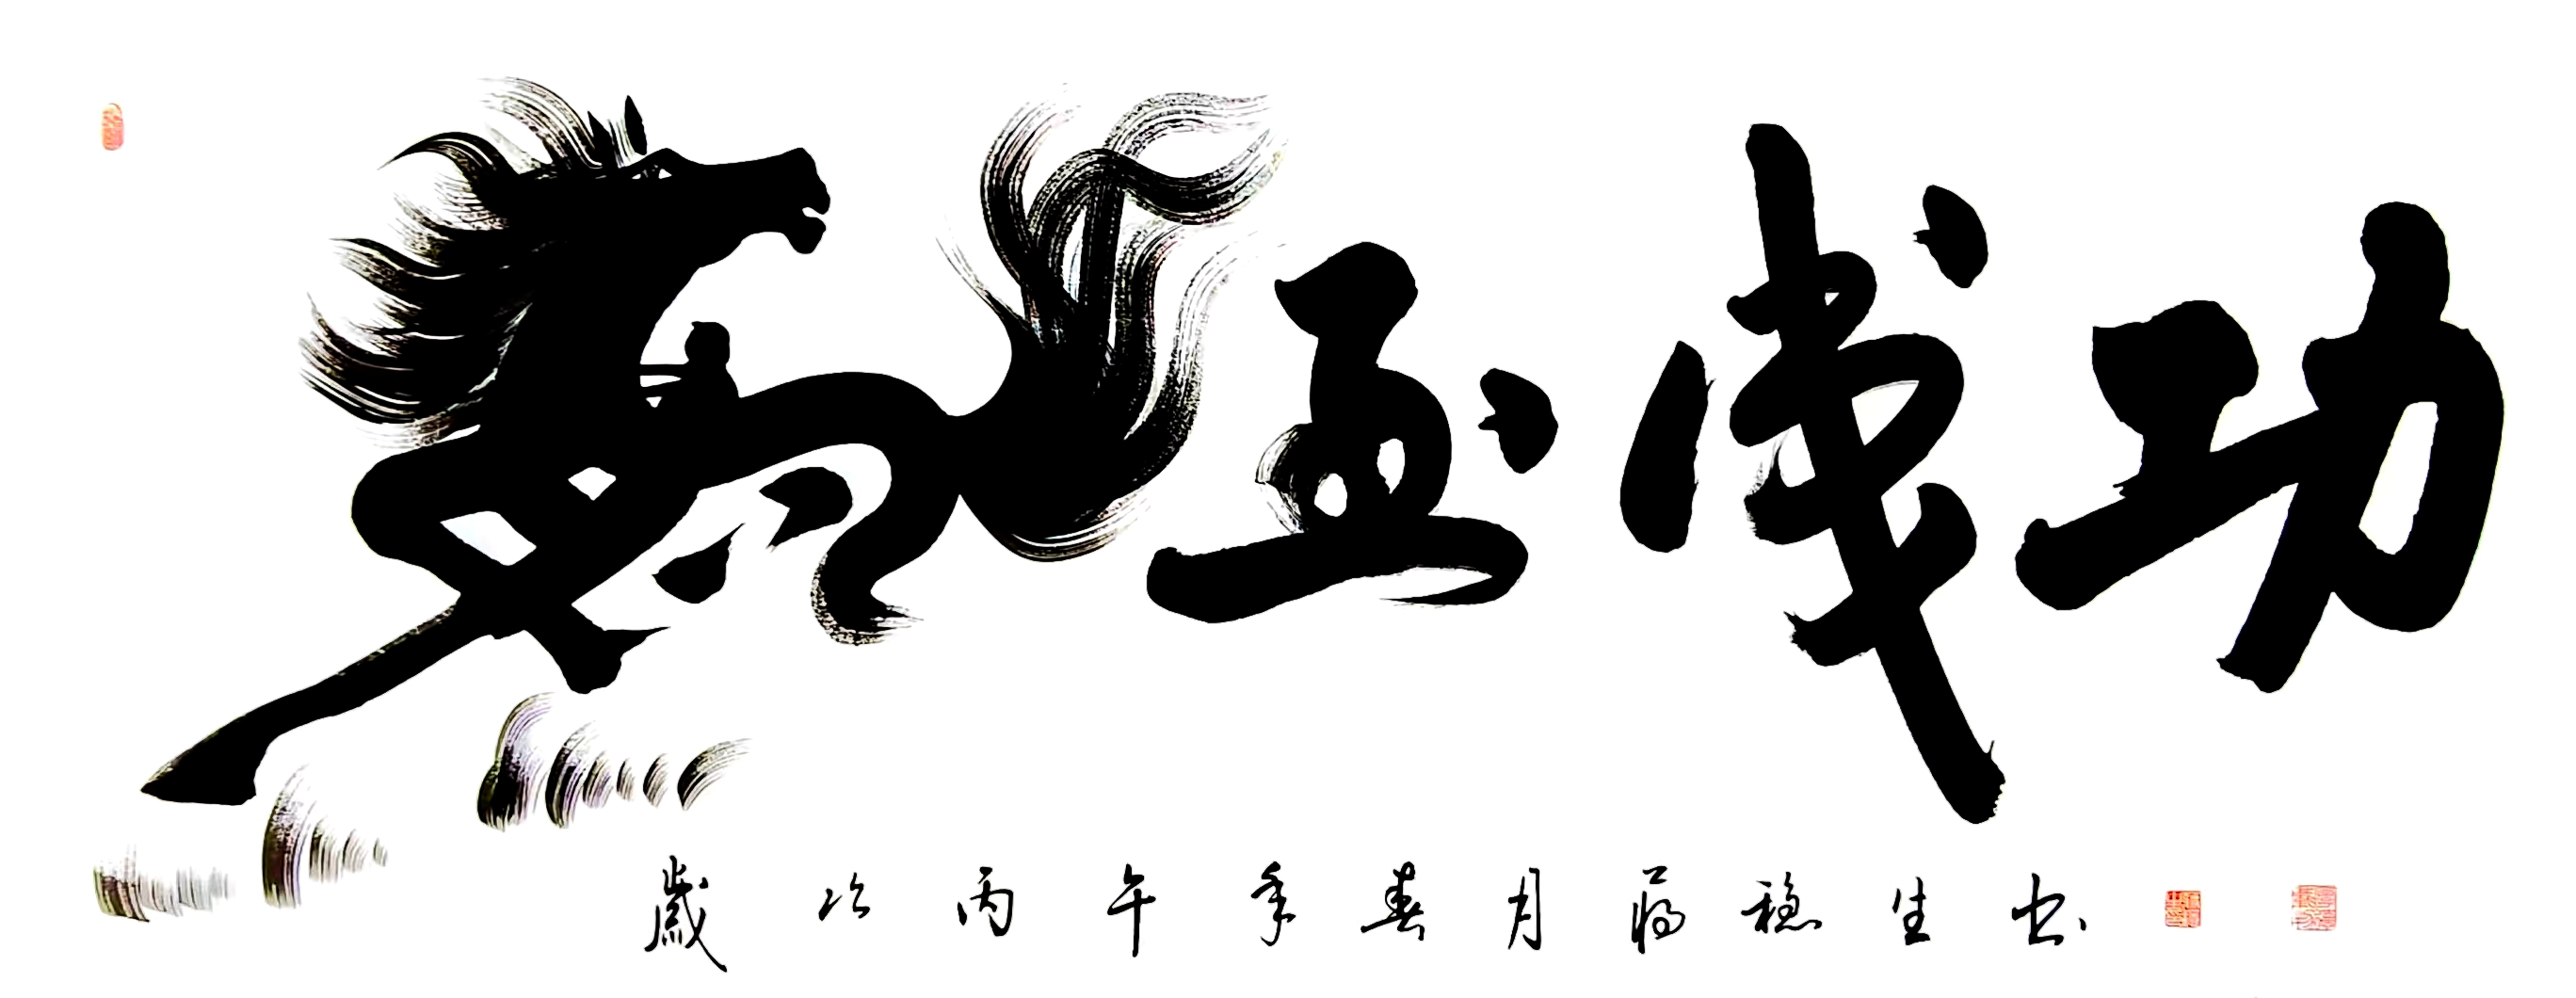 马到成功
歲次丙午年春月蒋稳生书